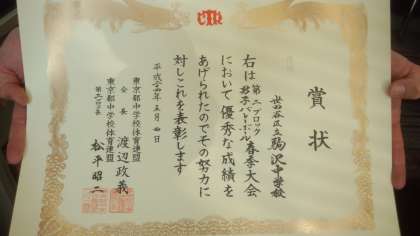 賞状
世田谷区立駒沢中学校
右は第二ブロック男子バレーボール春季大会
において優秀な成績を
あげられたのでその努力に
対しこれを表彰します
東京都中学校体育連盟
会長 渡辺政義
東京都中学校体育連盟
松平昭二